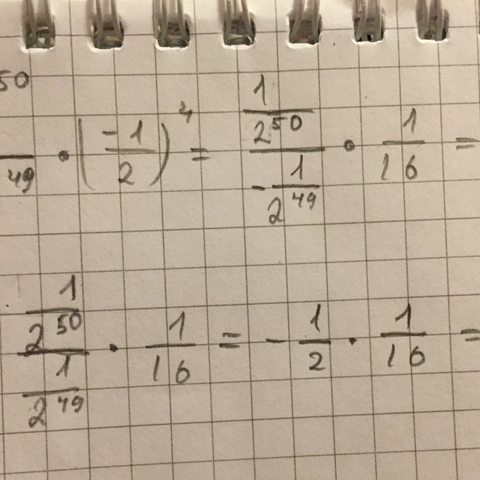 50
49 · (-1/2)^4 = (1/2^50)/(-1/2^49) · 1/16 =
(1/2^50)/(1/2^49) · 1/16 = - 1/2 · 1/16 =